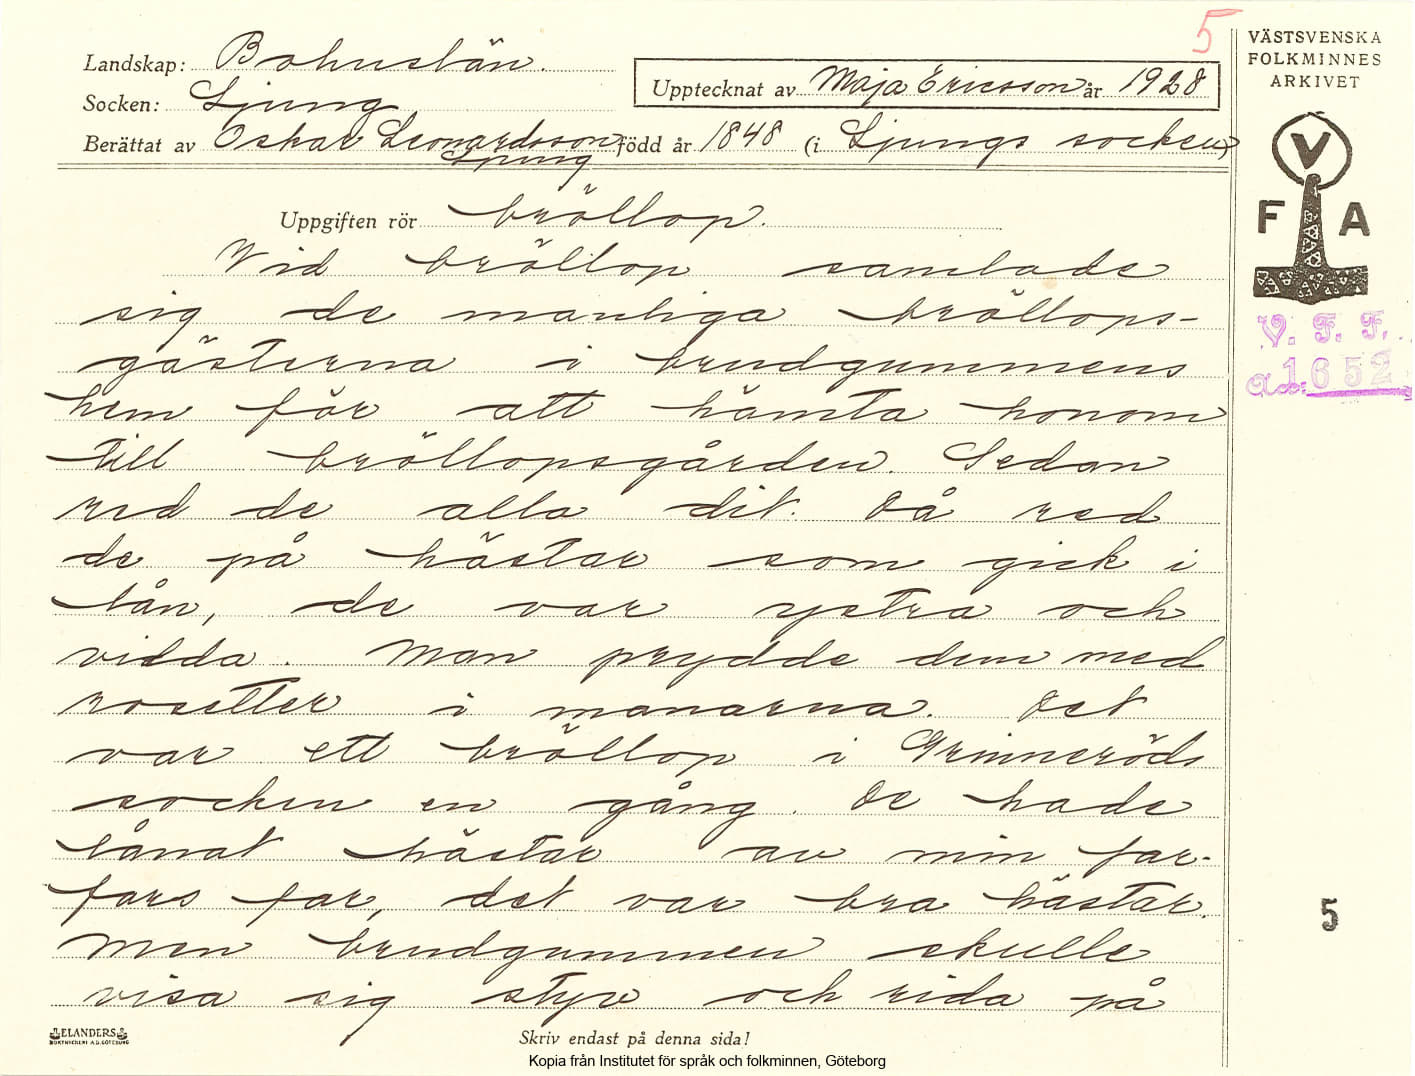 5
VÄSTSVENSKA
FOLKMINNES
ARKIVET
Landskap: Bohuslän.
Socken: Ljung
Upptecknat av Maja Ericsson år 1928
Berättat av Oskar Leonardsson född år 1848 (i Ljungs socken)
Ljung
V
F A
V. F. F.
Acc: 1652
Uppgiften rör bröllop.
Vid bröllop samlade
sig de manliga bröllops-
gästerna i brudgummens
hem för att hämta honom
till bröllopsgården. Sedan
red de alla dit. Då red
de på hästar som gick i
lån, de var ystra och
vilda. Man prydde dem med
rosetter i manarna. Det
var ett bröllop i Grinneröds
socken en gång. De hade
lånat hästar av min far-
fars far, det var bra hästar.
Men brudgummen skulle
visa sig styv och rida på
5
ELANDERS
BOKTRYCKERI A.B. GÖTEBORG
Skriv endast på denna sida!
Kopia från Institutet för språk och folkminnen, Göteborg